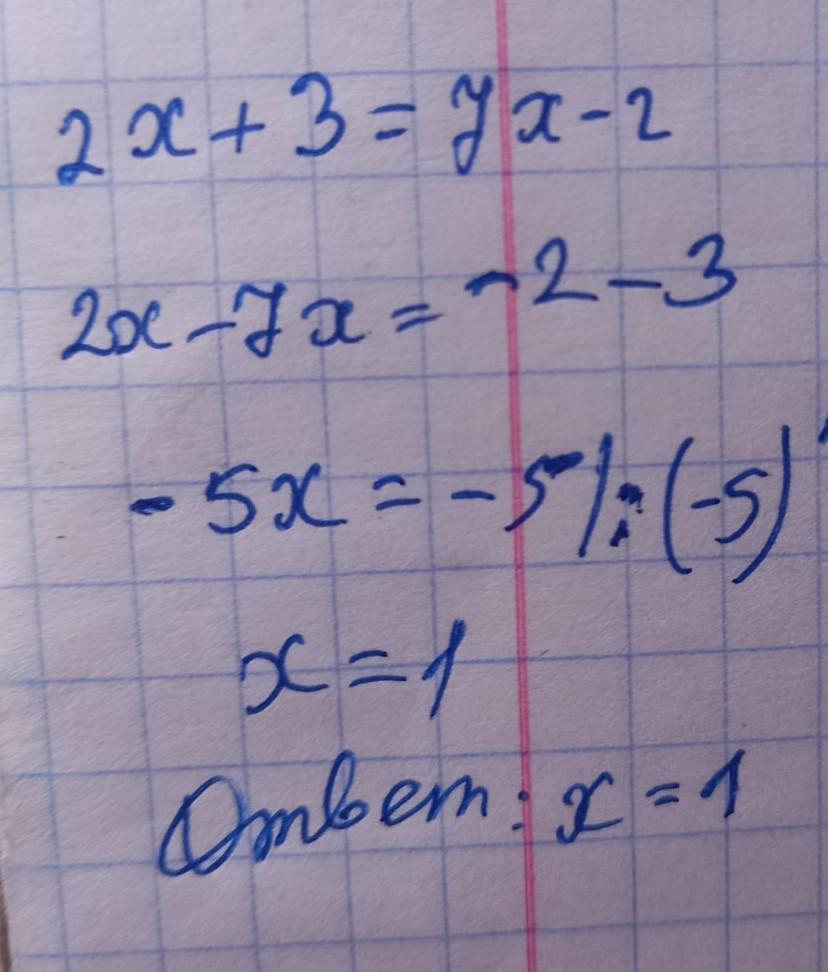 2x + 3 = 7x - 2
2x - 7x = -2 - 3
-5x = -5 | : (-5)
x = 1
Ответ: x = 1